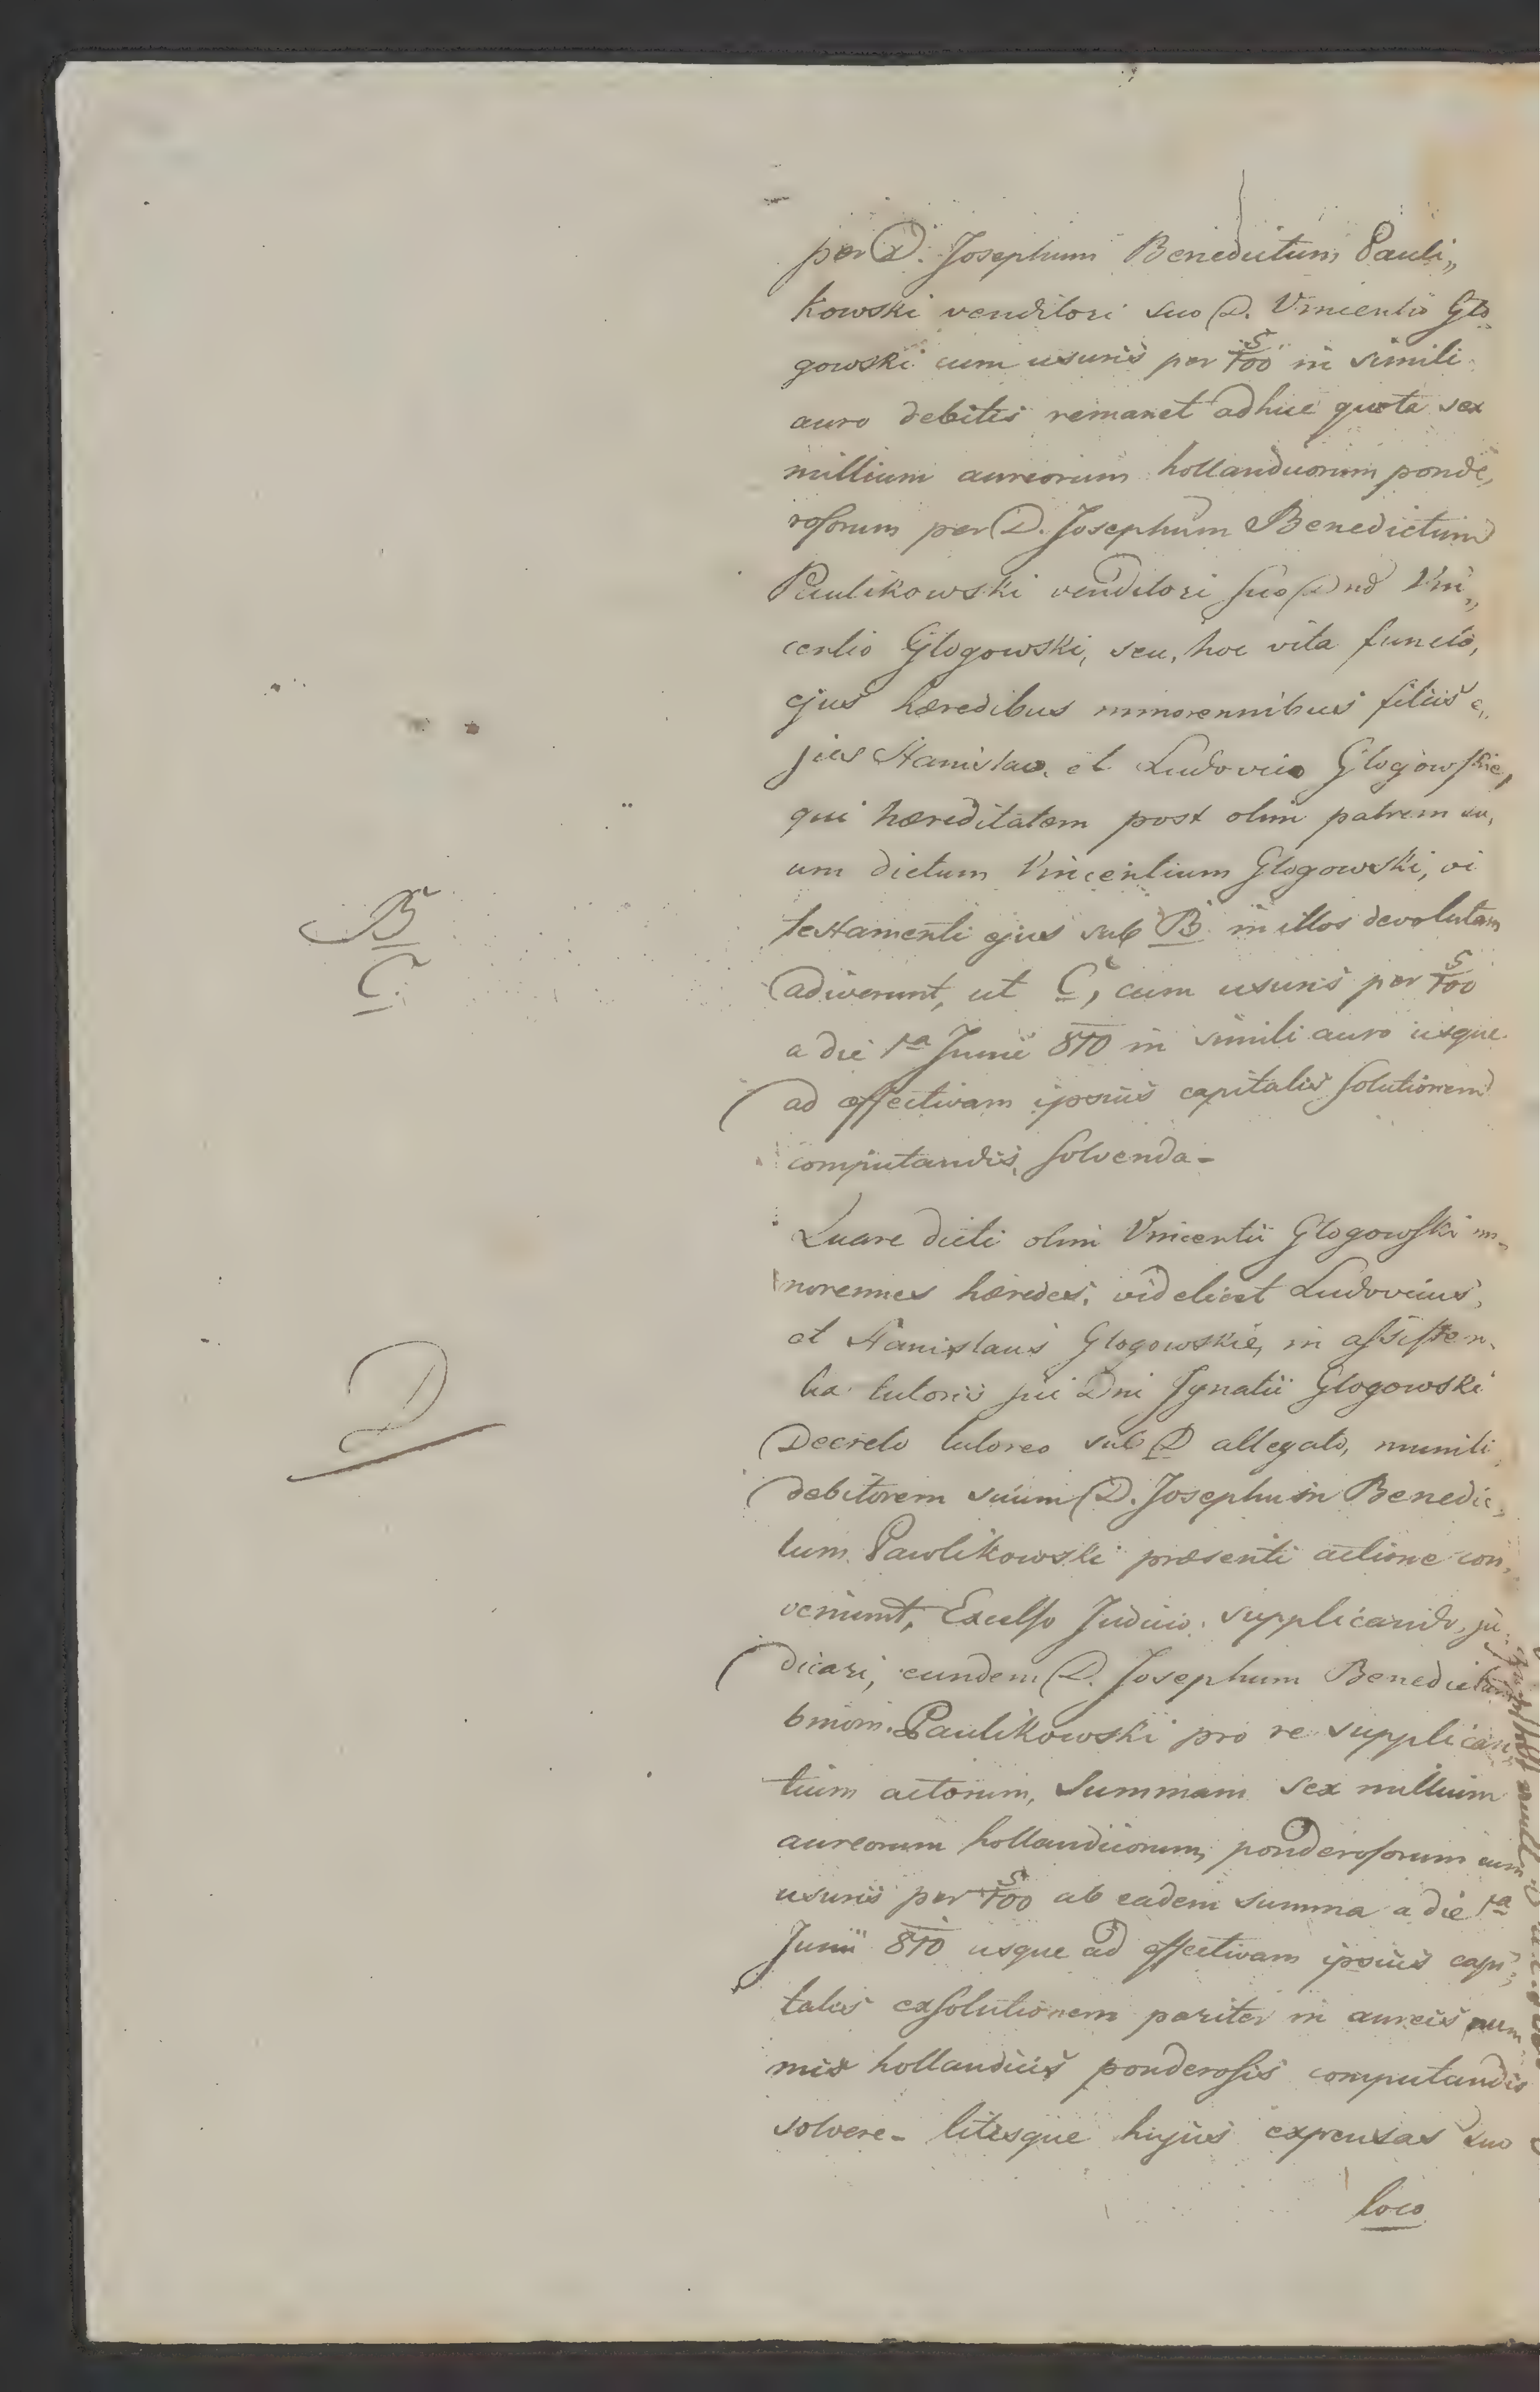 per D. Josephum Benedictum Pauli„
kowski venditori suo D. Vincentio Glo„
gowski cum usuris per 5/100 in simili
auro debitis remanet adhuc quota sex
millium aureorum hollandicorum ponde„
rosorum per D. Josephum Benedictum
Paulikowski venditori suo Dno Vin„
centio Glogowski, seu, hoc vita functo,
ejus hæredibus minorennibus filiis e„
jus Stanislao et Ludovico Glogowskie,
qui hæreditatem post olim patrem su„
um dictum Vincentium Glogowski, vi
testamenti ejus sub B in illos devolutam
adiverunt, ut C, cum usuris per 5/100
a die 1a Junii 810 in simili auro usque
ad effectivam ipsius capitalis solutionem
computandis, solvenda-
B
C.
Quare dicti olim Vincentii Glogowski mi„
norennes hæredes, videlicet Ludovicus,
et Stanislaus Glogowskie, in assisten„
tia tutoris sui Dni Ignatii Glogowski
Decreto tutoreo sub D allegato, muniti,
debitorem suum D. Josephum Benedic„
tum Pawlikowski præsenti actione con„
veniunt, Excelso Judicio supplicando, ju„
dicari, eundem D. Josephum Benedictum
D
bnom. Paulikowski pro re supplican„
tium actorum, Summam sex millium
aureorum hollandicorum, ponderosorum cum
usuris per 5/100 ab eadem summa a die 1a
Junii 810 usque ad effectivam ipsius capi„
talis exsolutionem pariter in aureis num„
mis hollandicis ponderosis computandis
solvere- litisque hujus expensas suo
loco